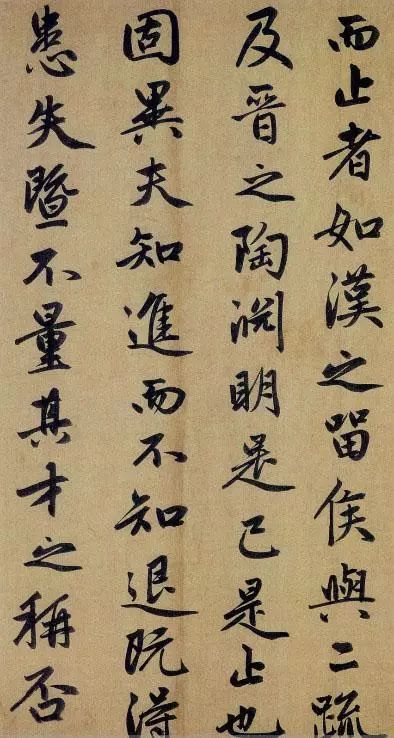 而止者如漢之留侯與二疏
及晉之陶淵明是已是止也
固異夫知進而不知退既得
患失暨不量其才之稱否